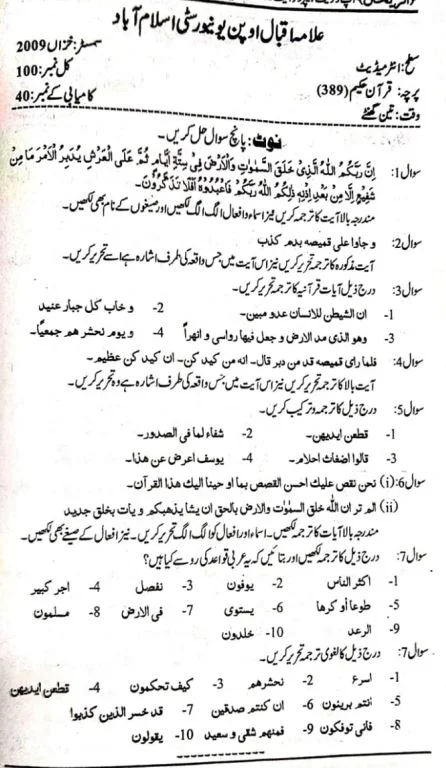 علامہ اقبال اوپن یونیورسٹی اسلام آباد
سطح: انٹرمیڈیٹ سمسٹر: خزاں 2009
پرچہ: قرآن حکیم (389) کل نمبر: 100
وقت: تین گھنٹے کامیابی کے نمبر: 40
نوٹ: پانچ سوال حل کریں۔
سوال1: اِنَّ رَبَّكُمُ اللّٰهُ الَّذِىْ خَلَقَ السَّمٰوٰتِ وَالْاَرْضَ فِىْ سِتَّةِ اَيَّامٍ ثُمَّ عَلَى الْعَرْشِ يُدَبِّرُ الْاَمْرَ مَا مِنْ
شَفِيْعٍ اِلَّا مِنْ بَعْدِ اِذْنِهٖ ذٰلِكُمُ اللّٰهُ رَبُّكُمْ فَاعْبُدُوْهُ اَفَلَا تَذَكَّرُوْنَ۔
مندرجہ بالا آیت کا ترجمہ کریں نیز اسماء و افعال الگ الگ لکھیں اور صیغوں کے نام بھی لکھیں۔
سوال2: و جاوا علی قمیصه بدم کذب
آیت مذکورہ کا ترجمہ تحریر کریں نیز اس آیت میں جس واقعہ کی طرف اشارہ ہے اسے تحریر کریں۔
سوال3: درج ذیل آیات قرآنیہ کا ترجمہ تحریر کریں۔
1- ان الشیطن للانسان عدو مبین۔ 2- و خاب کل جبار عنید
3- وهو الذی مد الارض و جعل فیها رواسی و انهراً 4- و یوم نحشر هم جمعیاً۔
سوال4: فلما رای قمیصه قد من دبر قال۔ انه من کید کن۔ ان کید کن عظیم۔
آیت بالا کا ترجمہ تحریر کریں نیز اس آیت میں جس واقعہ کی طرف اشارہ ہے وہ تحریر کریں۔
سوال5: درج ذیل کا ترجمہ و ترکیب کریں۔
1- قطعن ایدیهن۔ 2- شفاء لما فی الصدور۔
3- قالوا اضغاث احلام۔ 4- یوسف اعرض عن هذا۔
سوال6: (i) نحن نقص علیك احسن القصص بما او حینا الیك هذا القرآن۔
(ii) الم تر ان اللّٰه خلق السمٰوٰت والارض بالحق ان یشا یذهبکم و یات بخلق جدید
مندرجہ بالا آیات کا ترجمہ لکھیں۔ اسماء اور افعال کو الگ الگ تحریر کریں۔ نیز افعال کے صیغے بھی لکھیں۔
سوال7: درج ذیل کا ترجمہ لکھیں اور بتائیں کہ یہ عربی قواعد کی رو سے کیا ہیں؟
1- اکثر الناس 2- یوفون 3- نفصل 4- اجر کبیر
5- طوعا أو کرها 6- یستوی 7- فی الارض 8- مسلمون
9- الرعد 10- خلدون
سوال7: درج ذیل کا لغوی ترجمہ تحریر کریں۔
1- اسرع 2- نحشرهم 3- کیف تحکمون 4- قطعن ایدیهن
5- انتم بریئون 6- ان کنتم صدقین 7- قد خسر الذین کذبوا
8- فانی توفکون 9- فمنهم شقی و سعید 10- یقولون